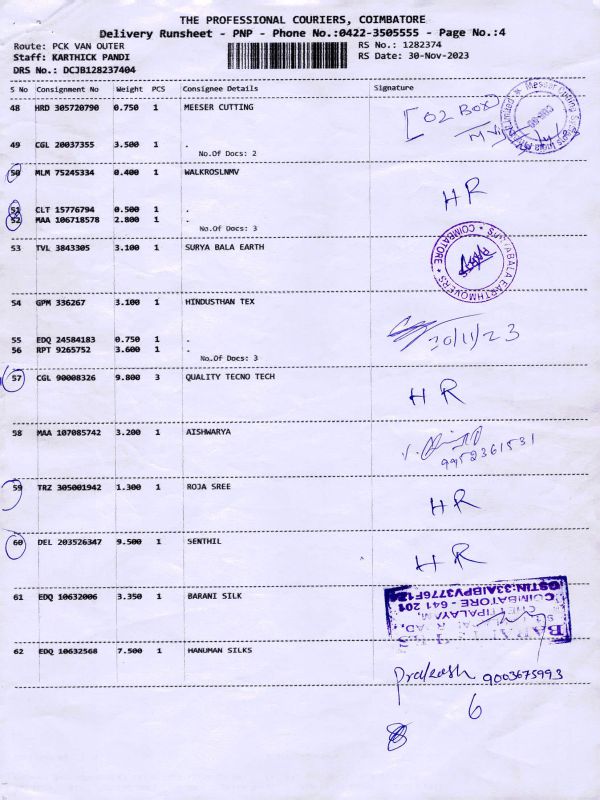 THE PROFESSIONAL COURIERS, COIMBATORE
Delivery Runsheet - PNP - Phone No.:0422-3505555 - Page No.:4
Route: PCK VAN OUTER RS No.: 1282374
Staff: KARTHICK PANDI RS Date: 30-Nov-2023
DRS No.: DCJB128237404
S No Consignment No Weight PCS Consignee Details Signature
48 HRD 305720790 0.750 1 MEESER CUTTING
[02 Box]
49 CGL 20037355 3.500 1 .
No.Of Docs: 2
50 MLM 75245334 0.400 1 WALKROSLNMV
HR
51 CLT 15776794 0.500 1 .
52 MAA 106718578 2.800 1 .
No.Of Docs: 3
53 TVL 3843305 3.100 1 SURYA BALA EARTH
SURYABALA EARTHMOVERS * COIMBATORE *
54 GPM 336267 3.100 1 HINDUSTHAN TEX
30/11/23
55 EDQ 24584183 0.750 1 .
56 RPT 9265752 3.600 1 .
No.Of Docs: 3
57 CGL 90008326 9.800 3 QUALITY TECNO TECH
HR
58 MAA 107085742 3.200 1 AISHWARYA
9952361531
59 TRZ 305001942 1.300 1 ROJA SREE
HR
60 DEL 203526347 9.500 1 SENTHIL
HR
61 EDQ 10632006 3.350 1 BARANI SILK
COIMBATORE - 641 201
62 EDQ 10632568 7.500 1 HANUMAN SILKS
Prakash 9003675993
6
8